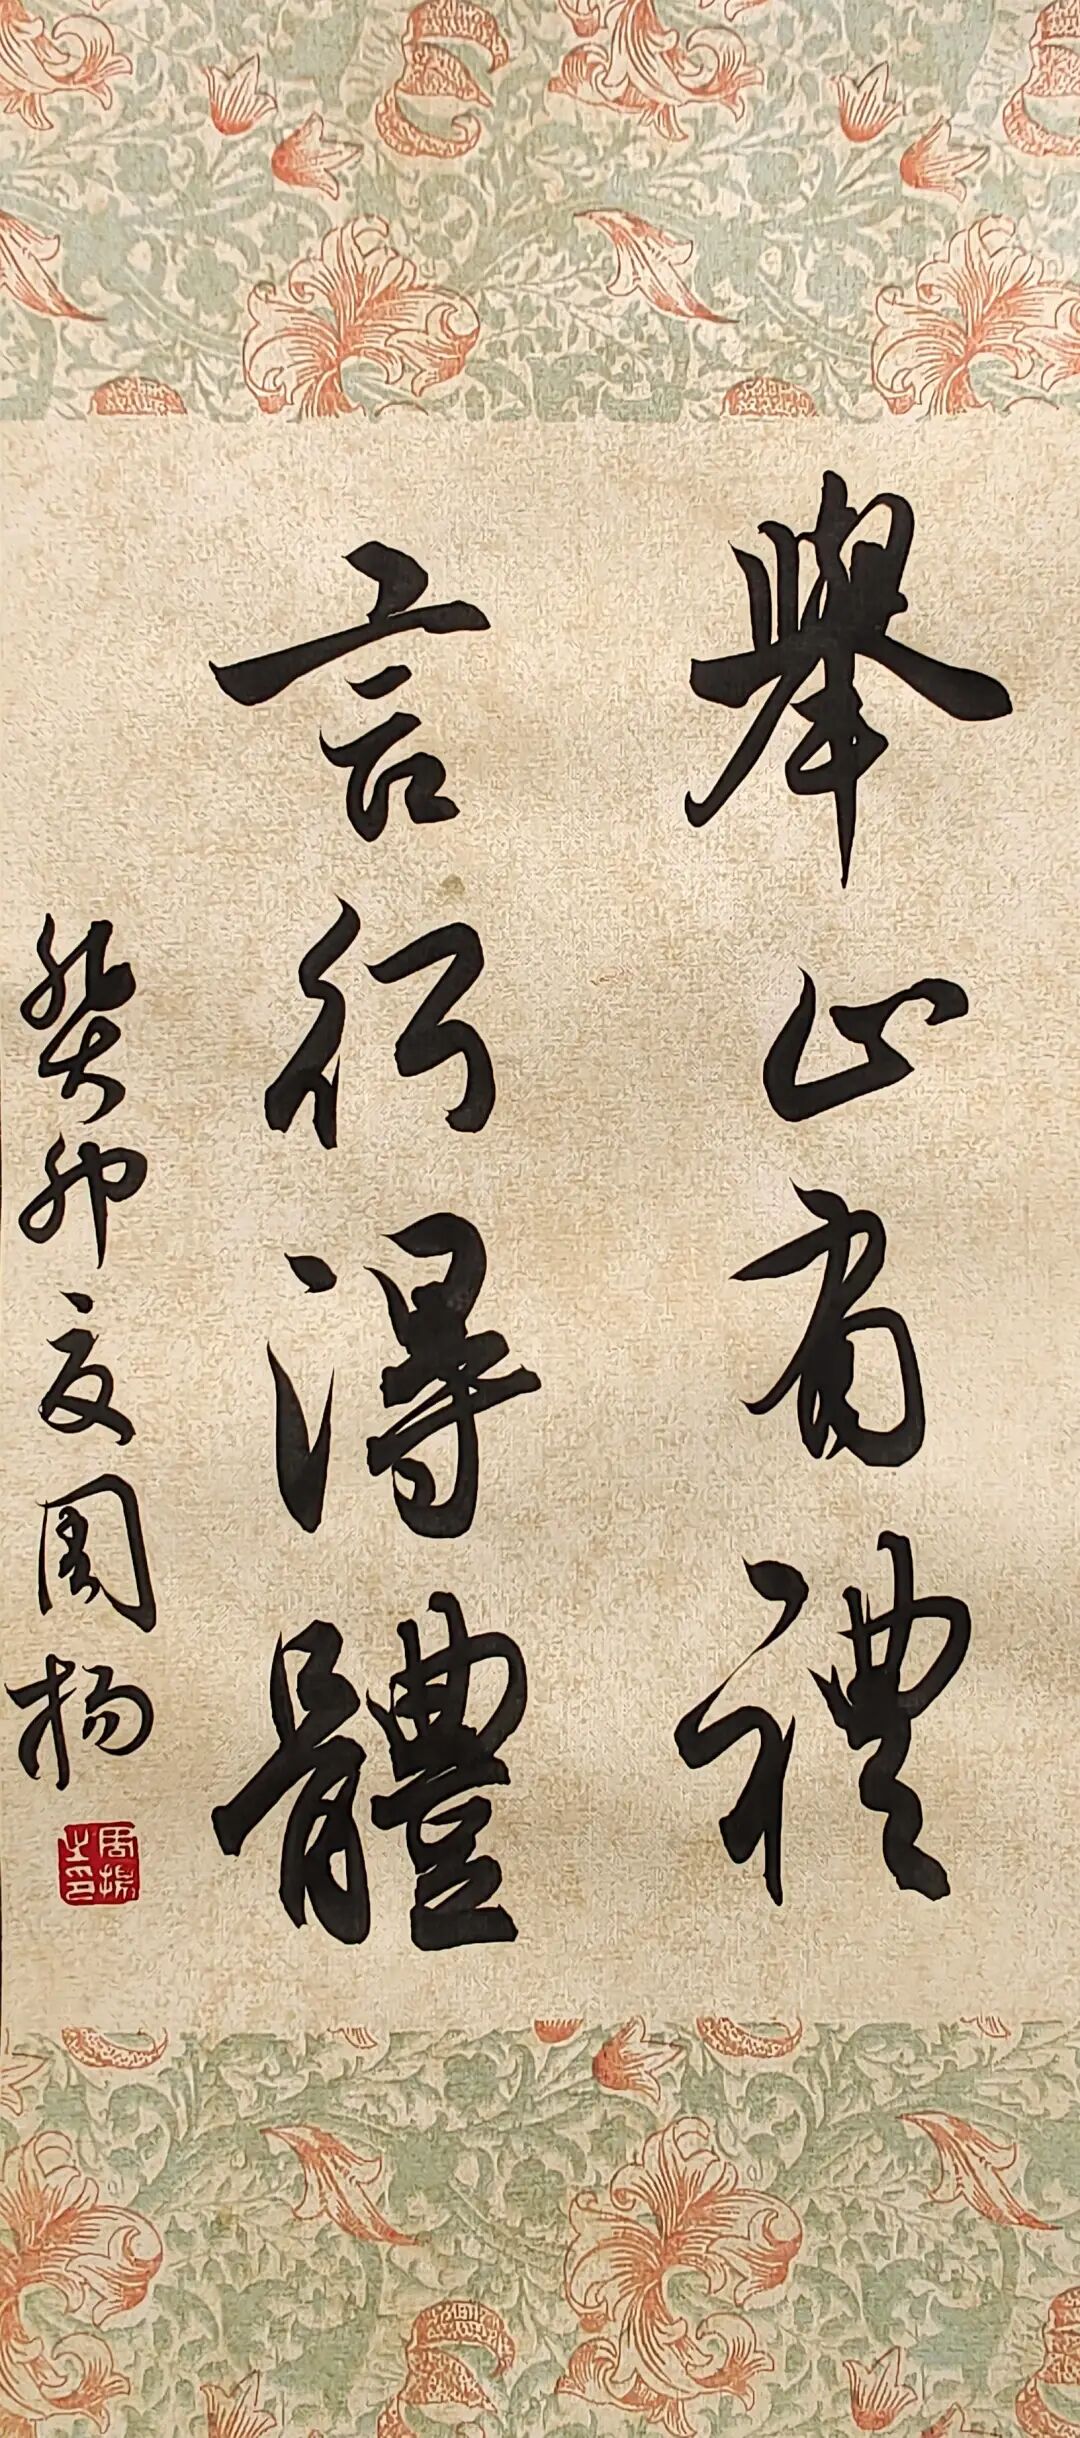 舉止有禮
言行得體
癸卯夏周揚
周揚之印